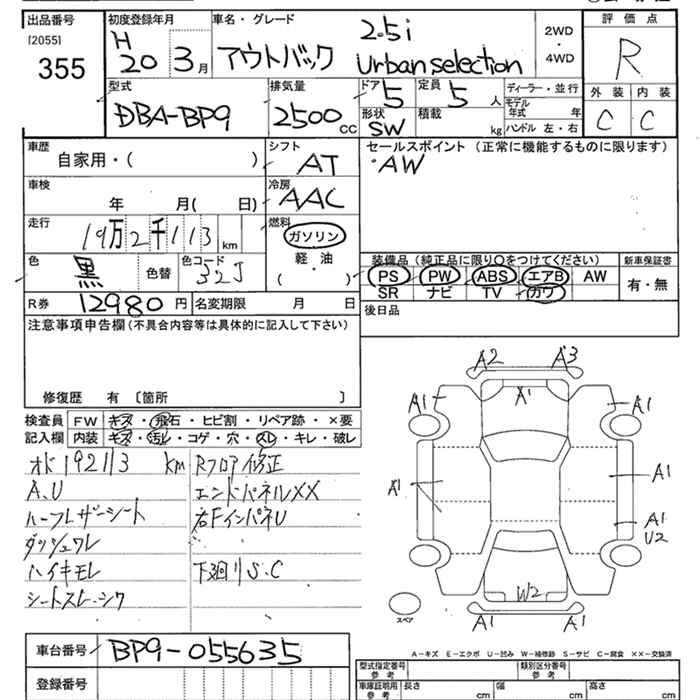 出品番号
[2055]
355
初度登録年月
H
20 3月
車名・グレード
アウトバック
2.5i
Urban selection
2WD
・
4WD
評価点
R
型式
DBA-BP9
排気量
2500cc
ドア
5
定員
5人
形状
SW
積載
kg
ディーラー・並行
モデル年式 年
ハンドル 左・右
外装 内装
C C
車歴
自家用・( )
シフト
AT
セールスポイント (正常に機能するものに限ります)
・AW
車検
年 月( 日)
冷房
AAC
走行
19万2千113km
燃料
ガソリン
軽・油
( )
色
黒
色替
色コード
32J
装備品 (純正品に限り○をつけてください)
新車保証書
PS PW ABS エアB AW
有・無
SR ナビ TV カワ
R券
12980円
名変期限 月 日
後日品
注意事項申告欄(不具合内容等は具体的に記入して下さい)
修復歴 有 〔箇所 〕
検査員
記入欄
FW キズ・飛石・ヒビ割・リペア跡・×要
内装 キズ・汚レ・コゲ・穴・スレ・キレ・破レ
オド192113km
A.U
ハーフレザーシート
ダッシュワレ
ハイキモレ
シートスレ・シワ
Rフロア修正
エンドパネルXX
右FインパネU
下廻りS.C
A2 A3
A1 A1 A1
A1 A1
A1
U2
W2
A1 A1
スペア
車台番号
BP9-055635
登録番号
A-キズ E-エクボ U-凹み W-補修跡 S-サビ C-腐食 XX-交換済
型式指定番号
参考
類別区分番号
参考
車庫証明用
参考
長さ cm
幅 cm
高さ cm